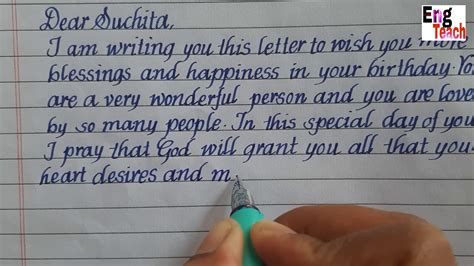 Eng
Teach
Dear Suchita,
I am writing you this letter to wish you more
blessings and happiness in your birthday. Yo
are a very wonderful person and you are love
by so many people. In this special day of you
I pray that God will grant you all that you
heart desires and m